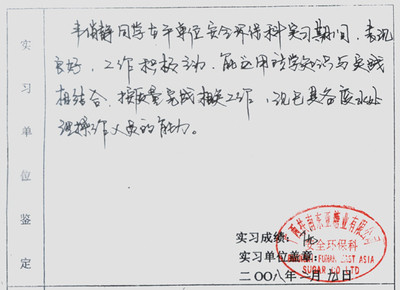 实习单位鉴定
韦俏静同学在于单位安全环保科实习期间,表现
良好,工作积极主动,能应用所学知识与实践
相结合,按质量完成相关工作,现已具备废水处
理操作人员的能力。
实习成绩:
安全环保科
EAST ASIA
实习单位盖章:
SUGAR CO LTD
二〇〇八年 月 日